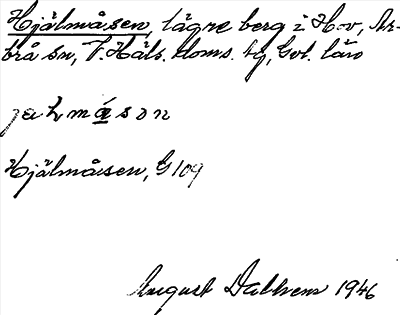 Hjälmåsen, lägre berg i H-v, Ar-
brå sn, V. Häls. doms. tg, Gvl. län
jɛlmåsɒn
Hjälmåsen, G 109
August Dalhem 1946